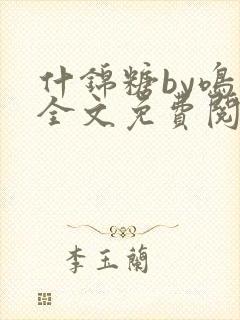 什錦糖by鳴
全文免費閱
李玉蘭